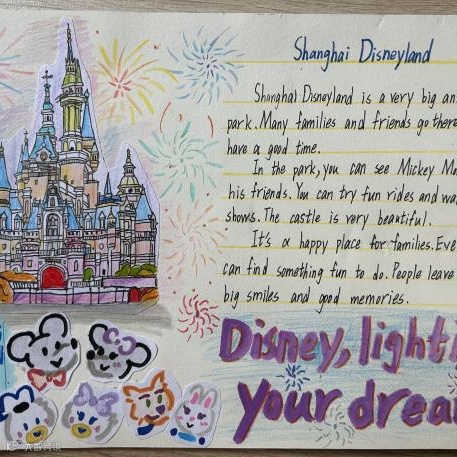 Shanghai Disneyland
Shanghai Disneyland is a very big an
park. Many families and friends go there
have a good time.
In the park, you can see Mickey M
his friends. You can try fun rides and wa
shows. The castle is very beautiful.
It's a happy place for families. Eve
can find something fun to do. People leave
big smiles and good memories.
Disney, light
your drea